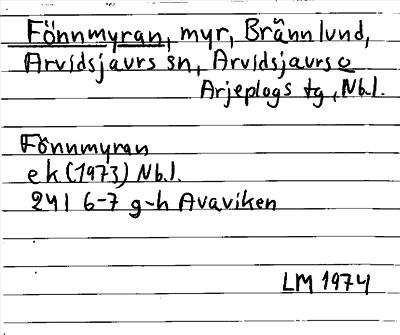 Fönnmyran, myr, Brännlund,
Arvidsjaurs sn, Arvidsjaurs o
Arjeplogs tg, Nb.l.
Fönnmyran
ek (1973) Nb.l.
241 6-7 g-h Avaviken
LM 1974